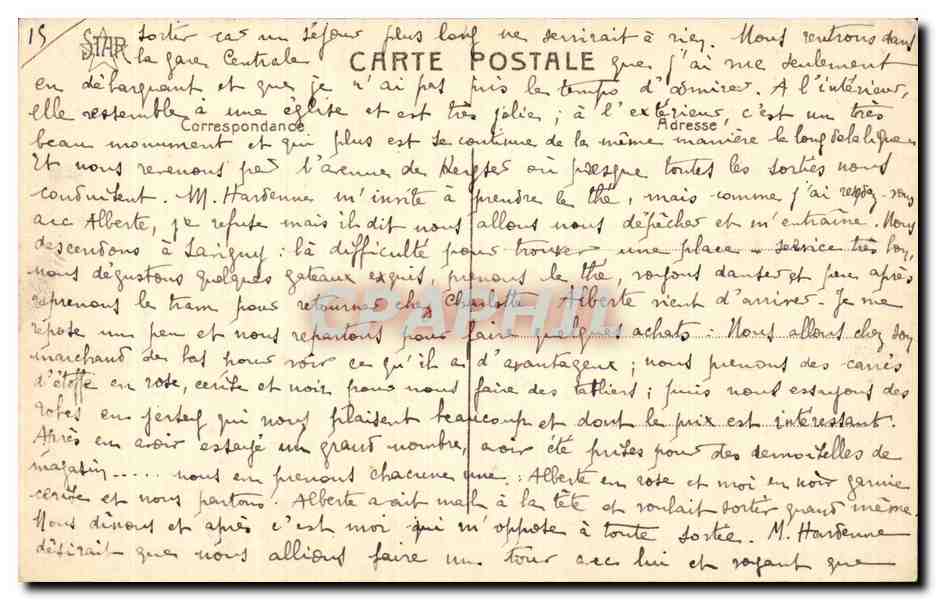 15
STAR
sortir car un séjour plus long ne servirait à rien. Nous rentrons dans
la gare Centrale
CARTE POSTALE
que j'ai vue seulement
en débarquant et que je n'ai pas pris le temps d'admirer. A l'intérieur,
elle ressemble à une église et est très jolie ; à l'extérieur, c'est un très
Correspondance
Adresse
beau monument et qui plus est se continue de la même manière le long de la ligne
Et nous revenons par l'avenue de Keyser où presque toutes les sorties nous
conduisent. M. Hardenne m'invite à prendre le thé, mais comme j'ai rendez-vous
avec Alberte, je refuse mais il dit nous allons nous dépêcher et m'entraîne. Nous
descendons à Savigny : là difficulté pour trouver une place - service très long,
nous dégustons quelques gateaux exquis, prenons le thé, voyons danser et peu après
reprenons le tram pour retourner chez Charlotte. Alberte vient d'arriver. Je me
repose un peu et nous repartons pour faire quelques achats : Nous allons chez son
marchand de bas pour voir ce qu'il a d'avantageux ; nous prenons des carrés
d'étoffe en rose, cerise et noir pour nous faire des tabliers ; puis nous essayons des
robes en jersey qui nous plaisent beaucoup et dont le prix est intéressant.
Après en avoir essayé un grand nombre, avoir été prises pour des demoiselles de
magasin ..... nous en prenons chacune une : Alberte en rose et moi en noir garnie
cerise et nous partons. Alberte avait mal à la tête et voulait sortir quand même.
Nous dînons et après c'est moi qui m'oppose à toute sortie. M. Hardenne
désirait que nous allions faire un tour avec lui et voyant que
CPAPHIL